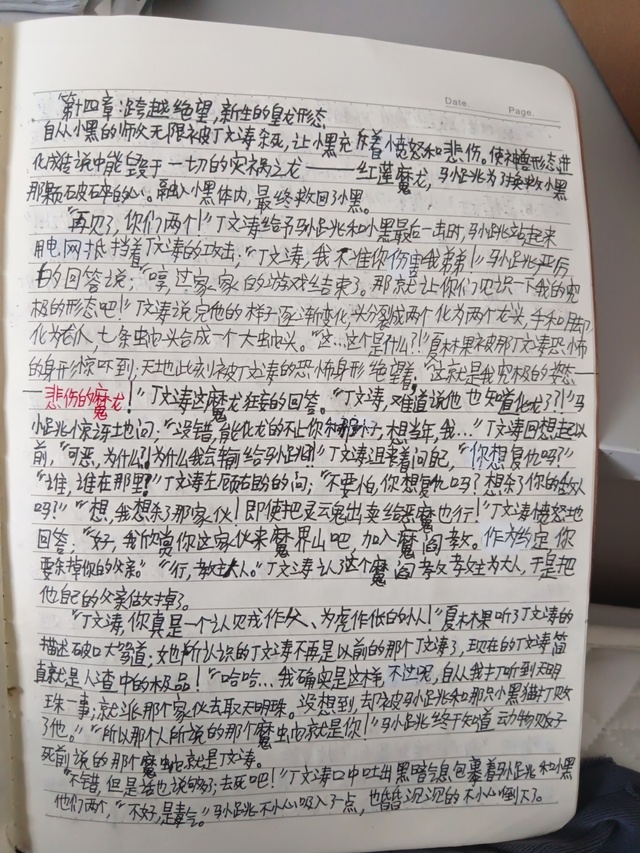 Date.          Page.
第十四章:跨越绝望,新生的皇龙形态
自从小黑的师父无限被丁文涛杀死,让小黑充斥着愤怒和悲伤。使神兽形态进
化成传说中能毁于一切的灾祸之龙———红莲魔龙,马小跳为了拯救小黑
那颗石破石碎的心。融入小黑体内,最终救回了小黑。
“再见了,你们两个!”丁文涛给予马小跳和小黑最后一击时,马小跳站起来
用电网抵挡着丁文涛的攻击,“丁文涛,我不准你伤害我弟弟!”马小跳严厉
的回答说;“哼,过家家的游戏结束了。那就让你们见识一下我的究
极的形态吧!”丁文涛说完他的样子逐渐变化,头分裂成两个化为两个龙头,手和脚
化为,七条虫头合成一个大虫头。“这…这个是什么?!”夏林果被那丁文涛恐怖
的身形惊吓到;天地此刻被丁文涛的恐怖身形绝望着。“这就是我究极的姿态—
—悲伤的魔龙!”丁文涛这魔龙狂妄的回答。“丁文涛,难道说他也知道化龙了?!”马
小跳惊讶地问,“没错,能化龙的不止你和那小子,想当年,我…”丁文涛回想起以
前,“可恶,为什么!为什么我会输给马小跳!”丁文涛诅骂着问自己,“你想复仇吗?”
“谁,谁在那里?”丁文涛左顾右盼的问;“不要怕,你想复仇吗?想杀了你的敌人
吗?”“想,我想杀了那家伙!即使把灵魂出卖给恶魔也行!”丁文涛愤怒地
回答,“好,我欣赏你这家伙来魔界山吧,加入魔阎教。作为约定你
要杀掉你的父亲。”“行,教主大人。”丁文涛认了这个魔阎教教主为大人,于是把
他自己的父亲做掉了。
“丁文涛,你真是一个认贼作父、为虎作伥的小人!”夏林果听了丁文涛的
描述破口大骂道;她所认识的丁文涛不再是以前的那个丁文涛了,现在的丁文涛简
直就是人渣中的极品!“哈哈…我确实是这样,不过呢,自从我打听到天明
珠一事;就派那个家伙去取天明珠。没想到,却被马小跳和那只小黑猫打败
了他。”“所以那个人所说的那个魔虫也就是你!”马小跳终于知道动物贩子
死前说的那个魔虫也就是丁文涛。
“不错,但是话也说够了;去死吧!”丁文涛口中吐出黑暗气息包裹着马小跳和小黑
他们两个,“不好,是毒气。”马小跳不小心吸入了一点,也昏昏沉沉的不小心倒下了。